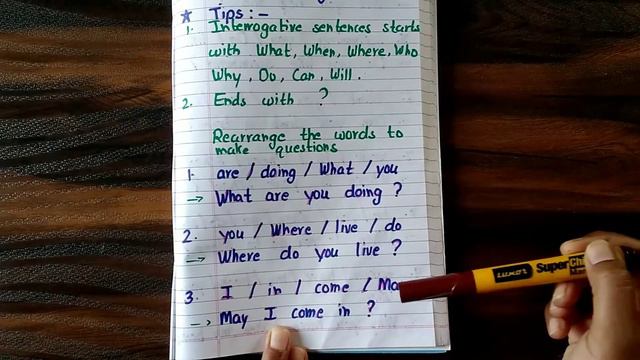 ★ Tips :-
1. Interrogative sentences starts
with What, When, Where, Who
Why, Do, Can, Will.
2. Ends with ?
Rearrange the words to
make questions
1. are / doing / What / you
→ What are you doing ?
2. you / Where / live / do
→ Where do you live ?
3. I / in / come /
→ May I come in ?
LUXOR Super